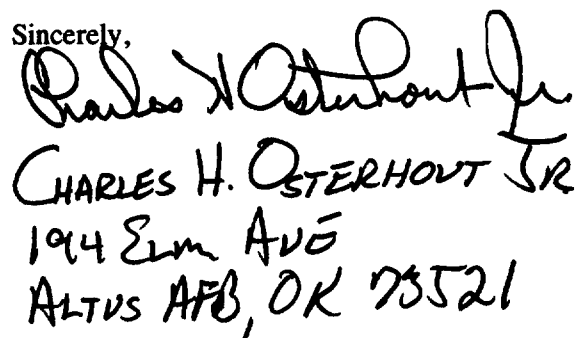 Sincerely,
Charles H Osterhout Jr.
CHARLES H. OSTERHOUT JR
194 ELM AVE
ALTUS AFB, OK 73521